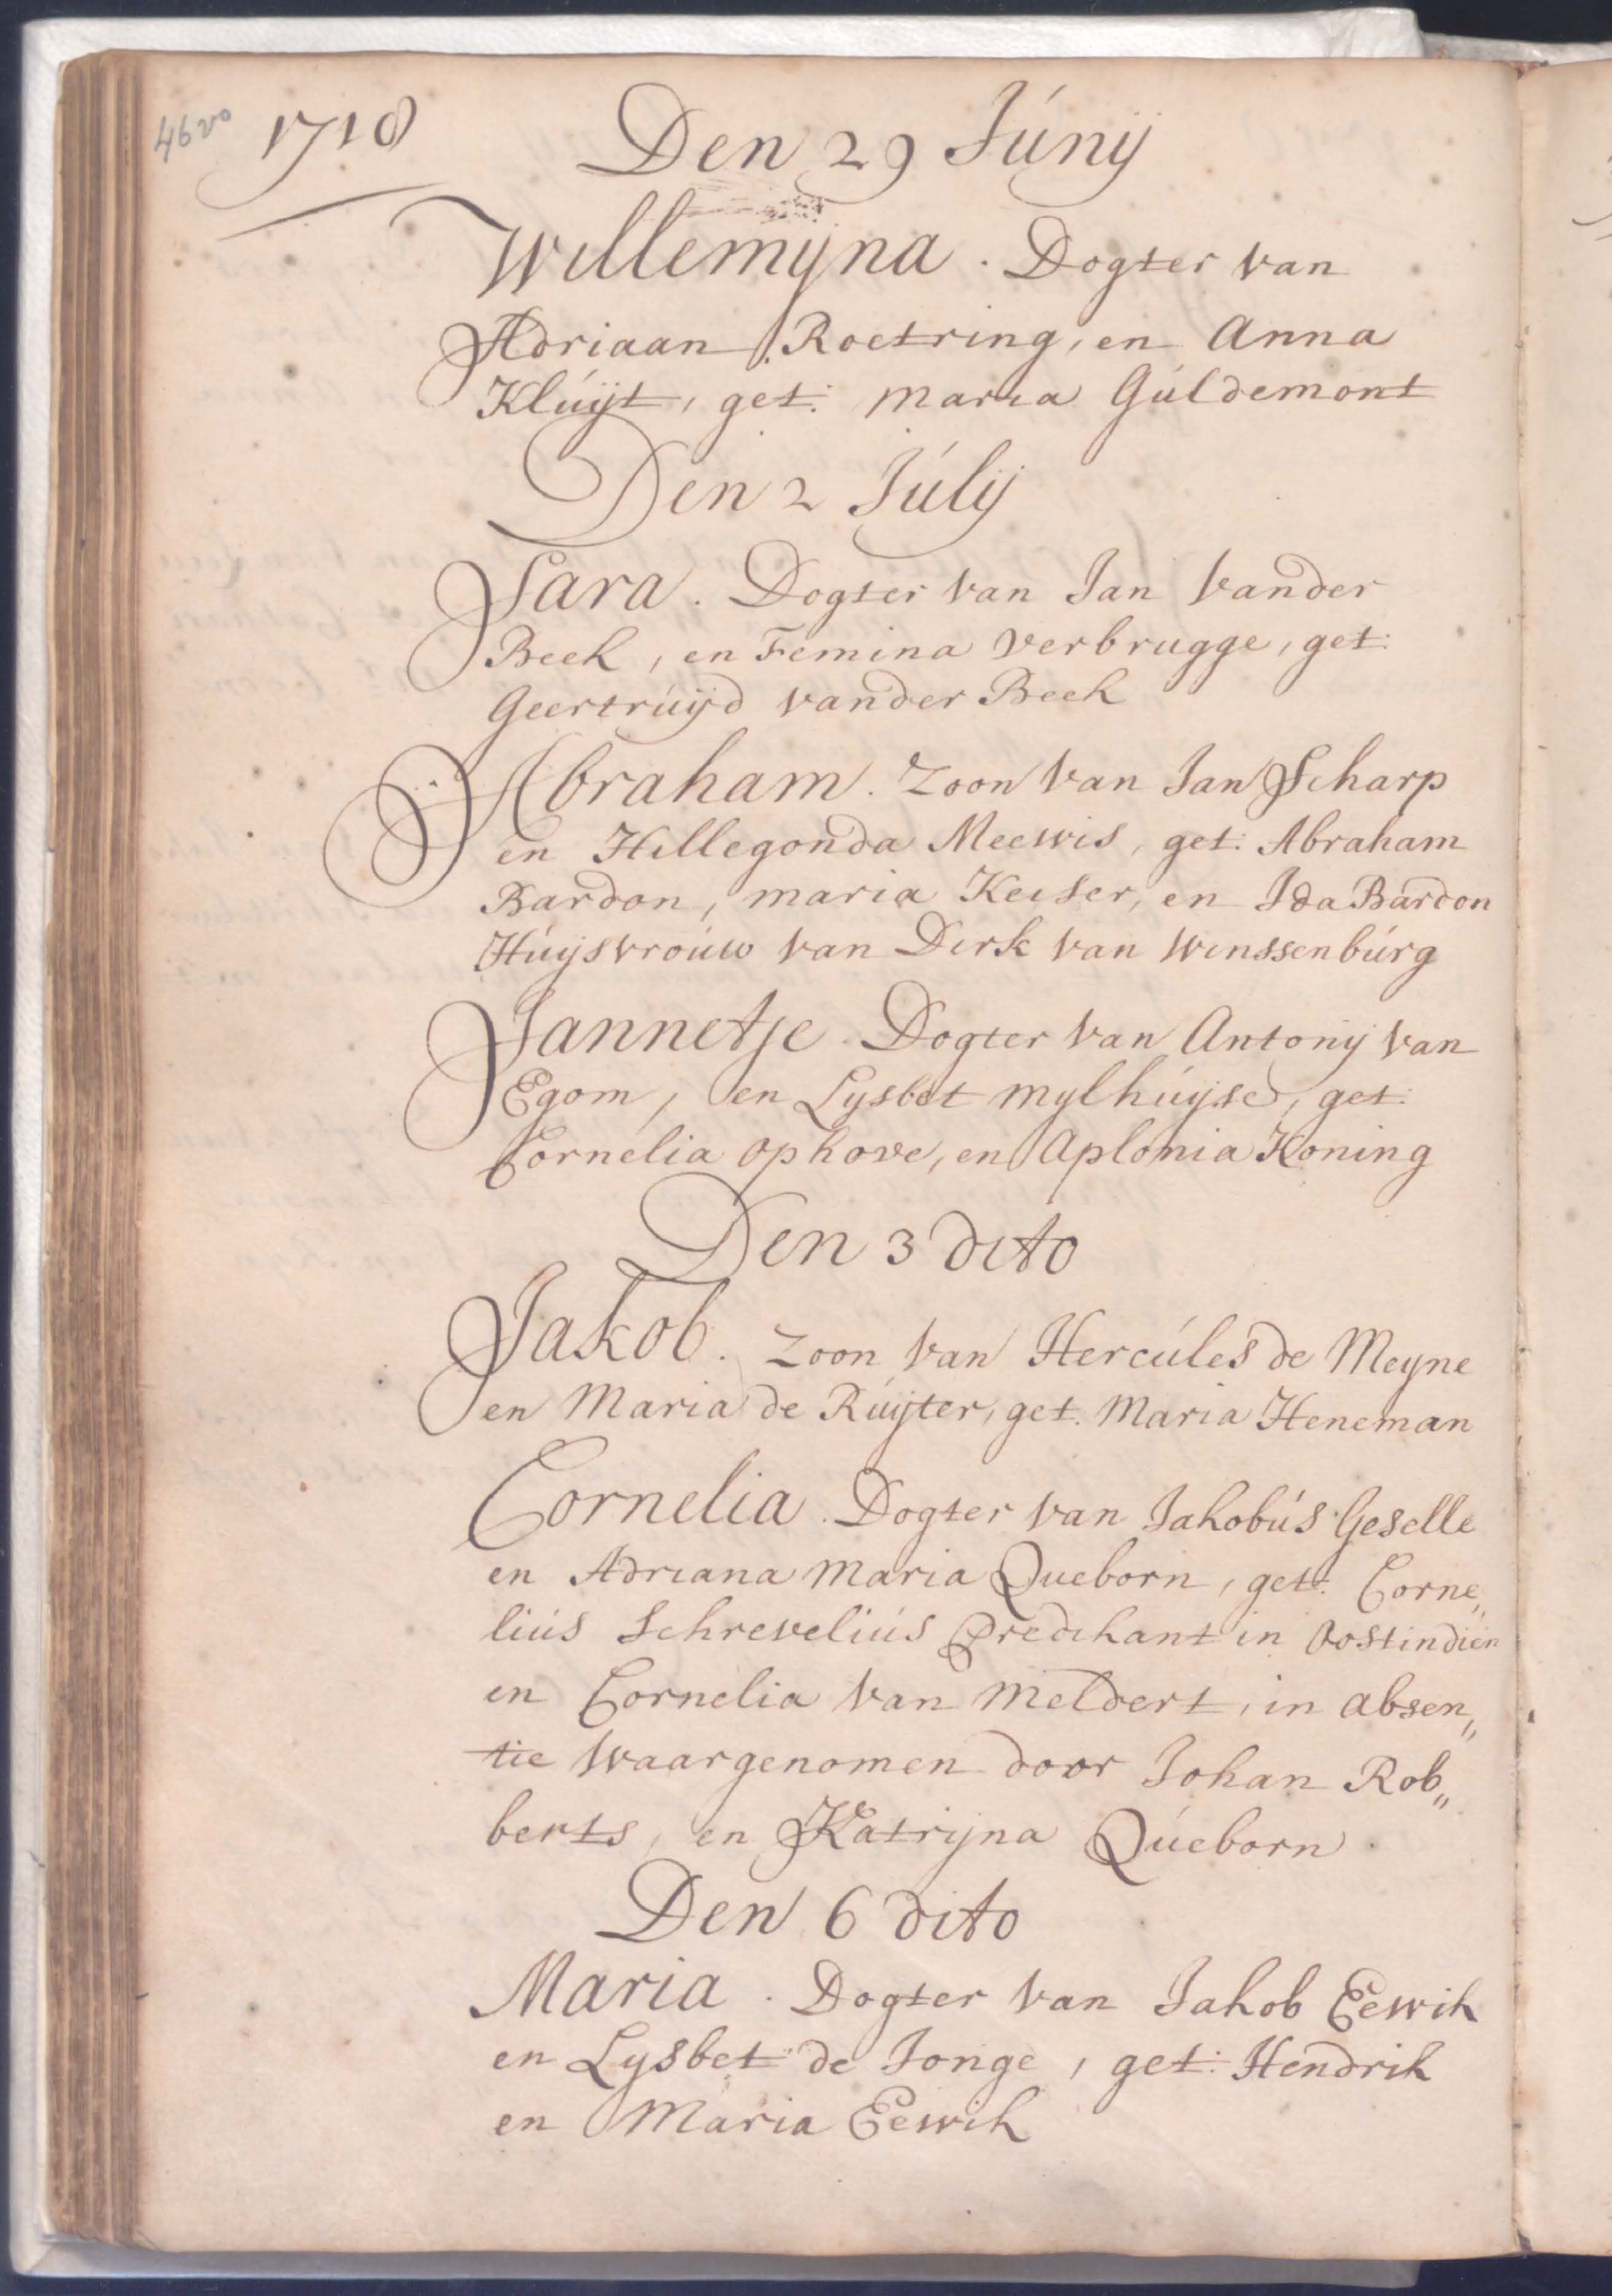 46vo 1718 Den 29 Júnij
Willemyna. Dogter van
Adriaan Roetring, en Anna
Klúijt, get: Maria Gúldemont
Den 2 Júlij
Sara. Dogter van Jan vander
Beek, en Femina Verbrugge, get:
Geertrúijd vander Beek
Abraham. Zoon van Jan Scharp
en Hillegonda Meewis, get: Abraham
Bardon, Maria Keiser, en Ida Bardon
Húijsvroúw van Dirk van Winssenbúrg
Jannetje. Dogter van Antonij van
Egom, en Lysbet Mylhúijse, get:
Cornelia Ophove, en Aplonia Koning
Den 3 dito
Jakob. Zoon van Hercúles de Meyne
en Maria de Rúijter, get. Maria Heneman
Cornelia. Dogter van Jakobús Geselle
en Adriana Maria Queborn, get: Corne„
liús Schreveliús Predikant in Oostindien
en Cornelia van Meldert, in absen„
tie waargenomen door Johan Rob„
berts, en Katrijna Qúeborn.
Den 6 dito
Maria. Dogter van Jakob Eewik
en Lysbet de Jonge, get: Hendrik
en Maria Eewik